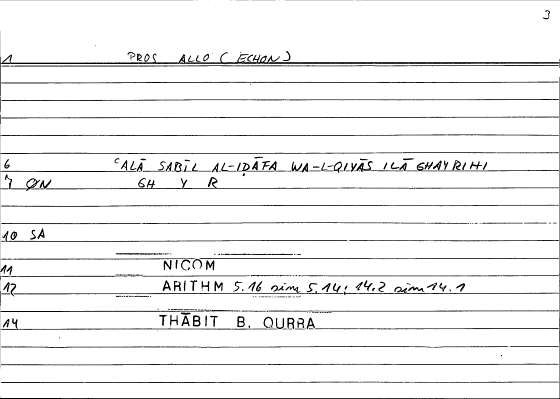 3
1 PROS ALLO (ECHON)
6 ʿALĀ SABĪL AL-IḌĀFA WA-L-QIYĀS ILĀ GHAYRIHI
7 ØN GH Y R
10 SA
11 NICOM
12 ARITHM 5.16 sim 5.14; 14.2 sim 14.1
14 THĀBIT B. QURRA